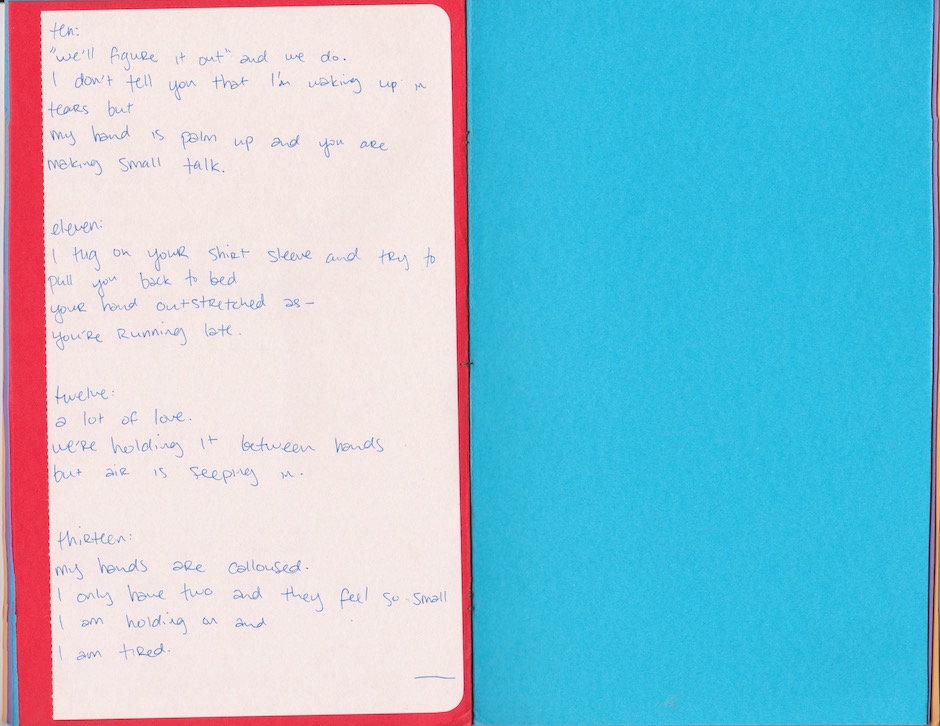 ten:
"we'll figure it out" and we do.
I don't tell you that I'm waking up in
tears but
my hand is palm up and you are
making small talk.
eleven:
I tug on your shirt sleeve and try to
pull you back to bed
your hand outstretched as–
you're running late.
twelve:
a lot of love.
we're holding it between hands
but air is seeping in.
thirteen:
my hands are calloused.
I only have two and they feel so small
I am holding on and
I am tired.